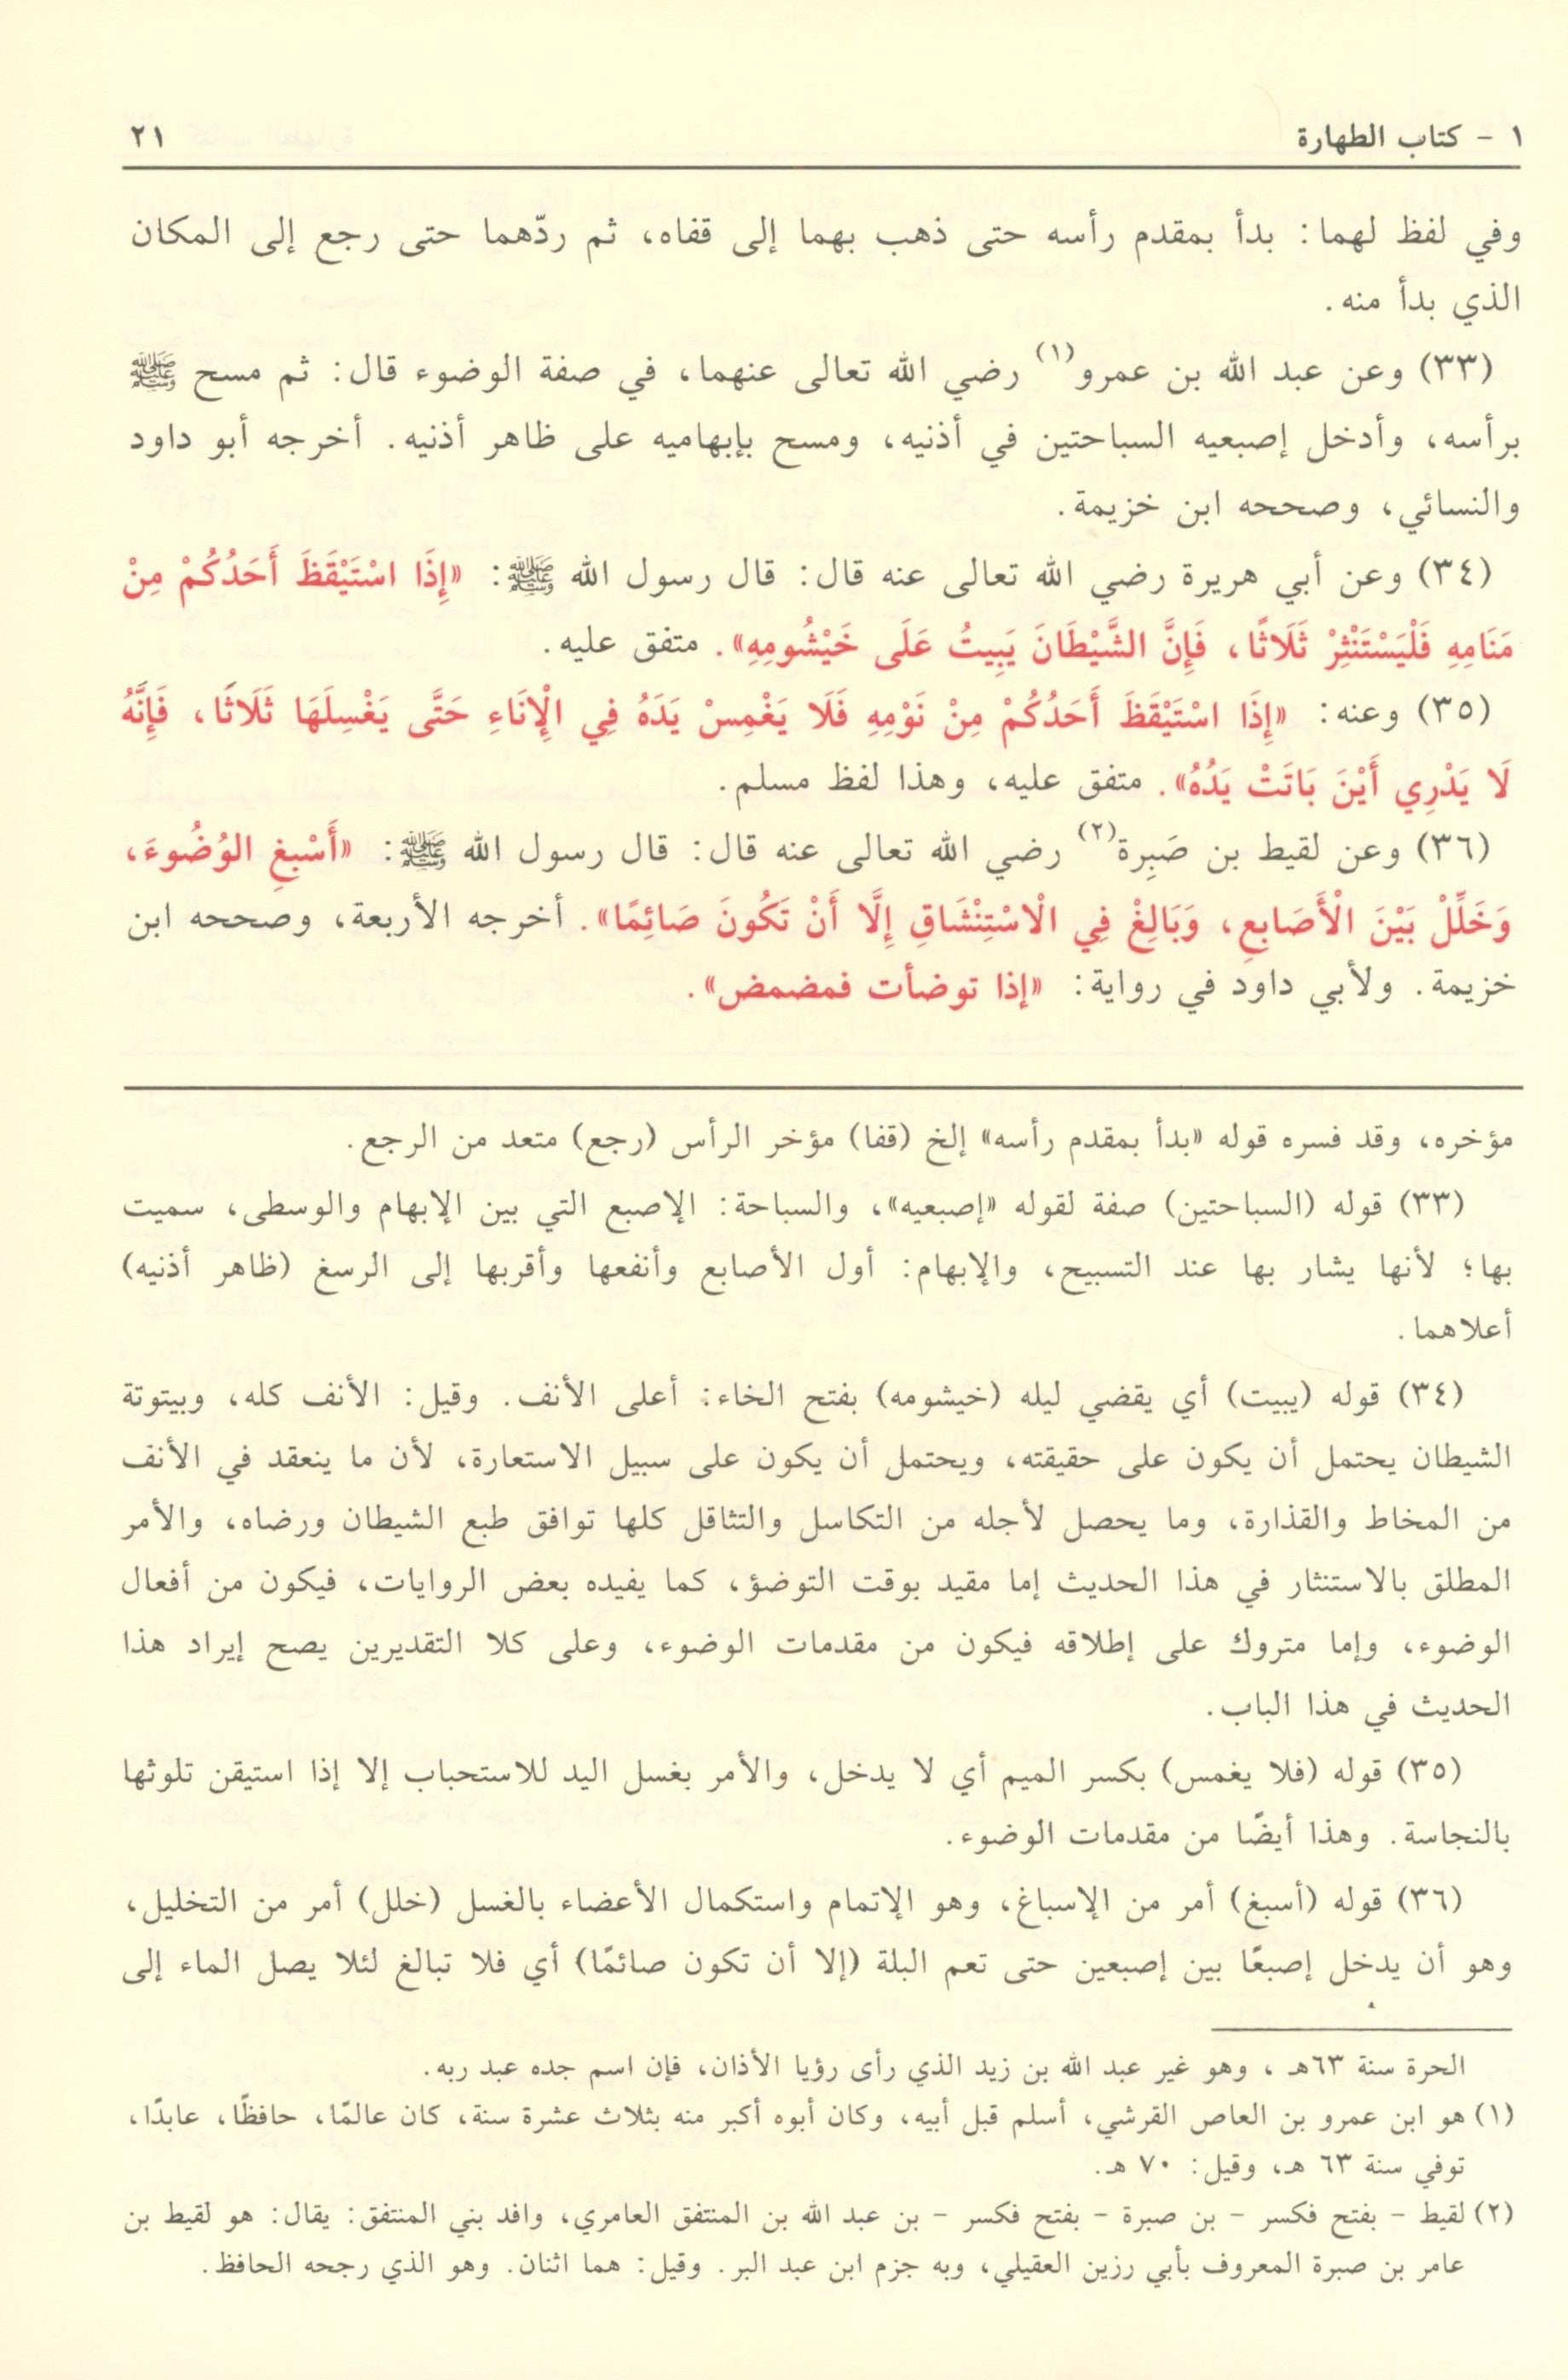 ١ - كتاب الطهارة ٢١
وفي لفظ لهما: بدأ بمقدم رأسه حتى ذهب بهما إلى قفاه، ثم ردّهما حتى رجع إلى المكان
الذي بدأ منه.
(٣٣) وعن عبد الله بن عمرو(١) رضي الله تعالى عنهما، في صفة الوضوء قال: ثم مسح ﷺ
برأسه، وأدخل إصبعيه السباحتين في أذنيه، ومسح بإبهاميه على ظاهر أذنيه. أخرجه أبو داود
والنسائي، وصححه ابن خزيمة.
(٣٤) وعن أبي هريرة رضي الله تعالى عنه قال: قال رسول الله ﷺ: «إِذَا اسْتَيْقَظَ أَحَدُكُمْ مِنْ
مَنَامِهِ فَلْيَسْتَنْثِرْ ثَلَاثًا، فَإِنَّ الشَّيْطَانَ يَبِيتُ عَلَى خَيْشُومِهِ». متفق عليه.
(٣٥) وعنه: «إِذَا اسْتَيْقَظَ أَحَدُكُمْ مِنْ نَوْمِهِ فَلَا يَغْمِسْ يَدَهُ فِي الْإِنَاءِ حَتَّى يَغْسِلَهَا ثَلَاثًا، فَإِنَّهُ
لَا يَدْرِي أَيْنَ بَاتَتْ يَدُهُ». متفق عليه، وهذا لفظ مسلم.
(٣٦) وعن لقيط بن صَبِرة(٢) رضي الله تعالى عنه قال: قال رسول الله ﷺ: «أَسْبِغِ الوُضُوءَ،
وَخَلِّلْ بَيْنَ الْأَصَابِعِ، وَبَالِغْ فِي الْاسْتِنْشَاقِ إِلَّا أَنْ تَكُونَ صَائِمًا». أخرجه الأربعة، وصححه ابن
خزيمة. ولأبي داود في رواية: «إذا توضأت فمضمض».
مؤخره، وقد فسره قوله «بدأ بمقدم رأسه» إلخ (قفا) مؤخر الرأس (رجع) متعد من الرجع.
(٣٣) قوله (السباحتين) صفة لقوله «إصبعيه»، والسباحة: الإصبع التي بين الإبهام والوسطى، سميت
بها؛ لأنها يشار بها عند التسبيح، والإبهام: أول الأصابع وأنفعها وأقربها إلى الرسغ (ظاهر أذنيه)
أعلاهما.
(٣٤) قوله (يبيت) أي يقضي ليله (خيشومه) بفتح الخاء: أعلى الأنف. وقيل: الأنف كله، وبيتوتة
الشيطان يحتمل أن يكون على حقيقته، ويحتمل أن يكون على سبيل الاستعارة، لأن ما ينعقد في الأنف
من المخاط والقذارة، وما يحصل لأجله من التكاسل والتثاقل كلها توافق طبع الشيطان ورضاه، والأمر
المطلق بالاستنثار في هذا الحديث إما مقيد بوقت التوضؤ، كما يفيده بعض الروايات، فيكون من أفعال
الوضوء، وإما متروك على إطلاقه فيكون من مقدمات الوضوء، وعلى كلا التقديرين يصح إيراد هذا
الحديث في هذا الباب.
(٣٥) قوله (فلا يغمس) بكسر الميم أي لا يدخل، والأمر بغسل اليد للاستحباب إلا إذا استيقن تلوثها
بالنجاسة. وهذا أيضًا من مقدمات الوضوء.
(٣٦) قوله (أسبغ) أمر من الإسباغ، وهو الإتمام واستكمال الأعضاء بالغسل (خلل) أمر من التخليل،
وهو أن يدخل إصبعًا بين إصبعين حتى تعم البلة (إلا أن تكون صائمًا) أي فلا تبالغ لئلا يصل الماء إلى
الحرة سنة ٦٣هـ ، وهو غير عبد الله بن زيد الذي رأى رؤيا الأذان، فإن اسم جده عبد ربه.
(١) هو ابن عمرو بن العاص القرشي، أسلم قبل أبيه، وكان أبوه أكبر منه بثلاث عشرة سنة، كان عالمًا، حافظًا، عابدًا،
توفي سنة ٦٣ هـ، وقيل: ٧٠ هـ.
(٢) لقيط - بفتح فكسر - بن صبرة - بفتح فكسر - بن عبد الله بن المنتفق العامري، وافد بني المنتفق: يقال: هو لقيط بن
عامر بن صبرة المعروف بأبي رزين العقيلي، وبه جزم ابن عبد البر. وقيل: هما اثنان. وهو الذي رجحه الحافظ.